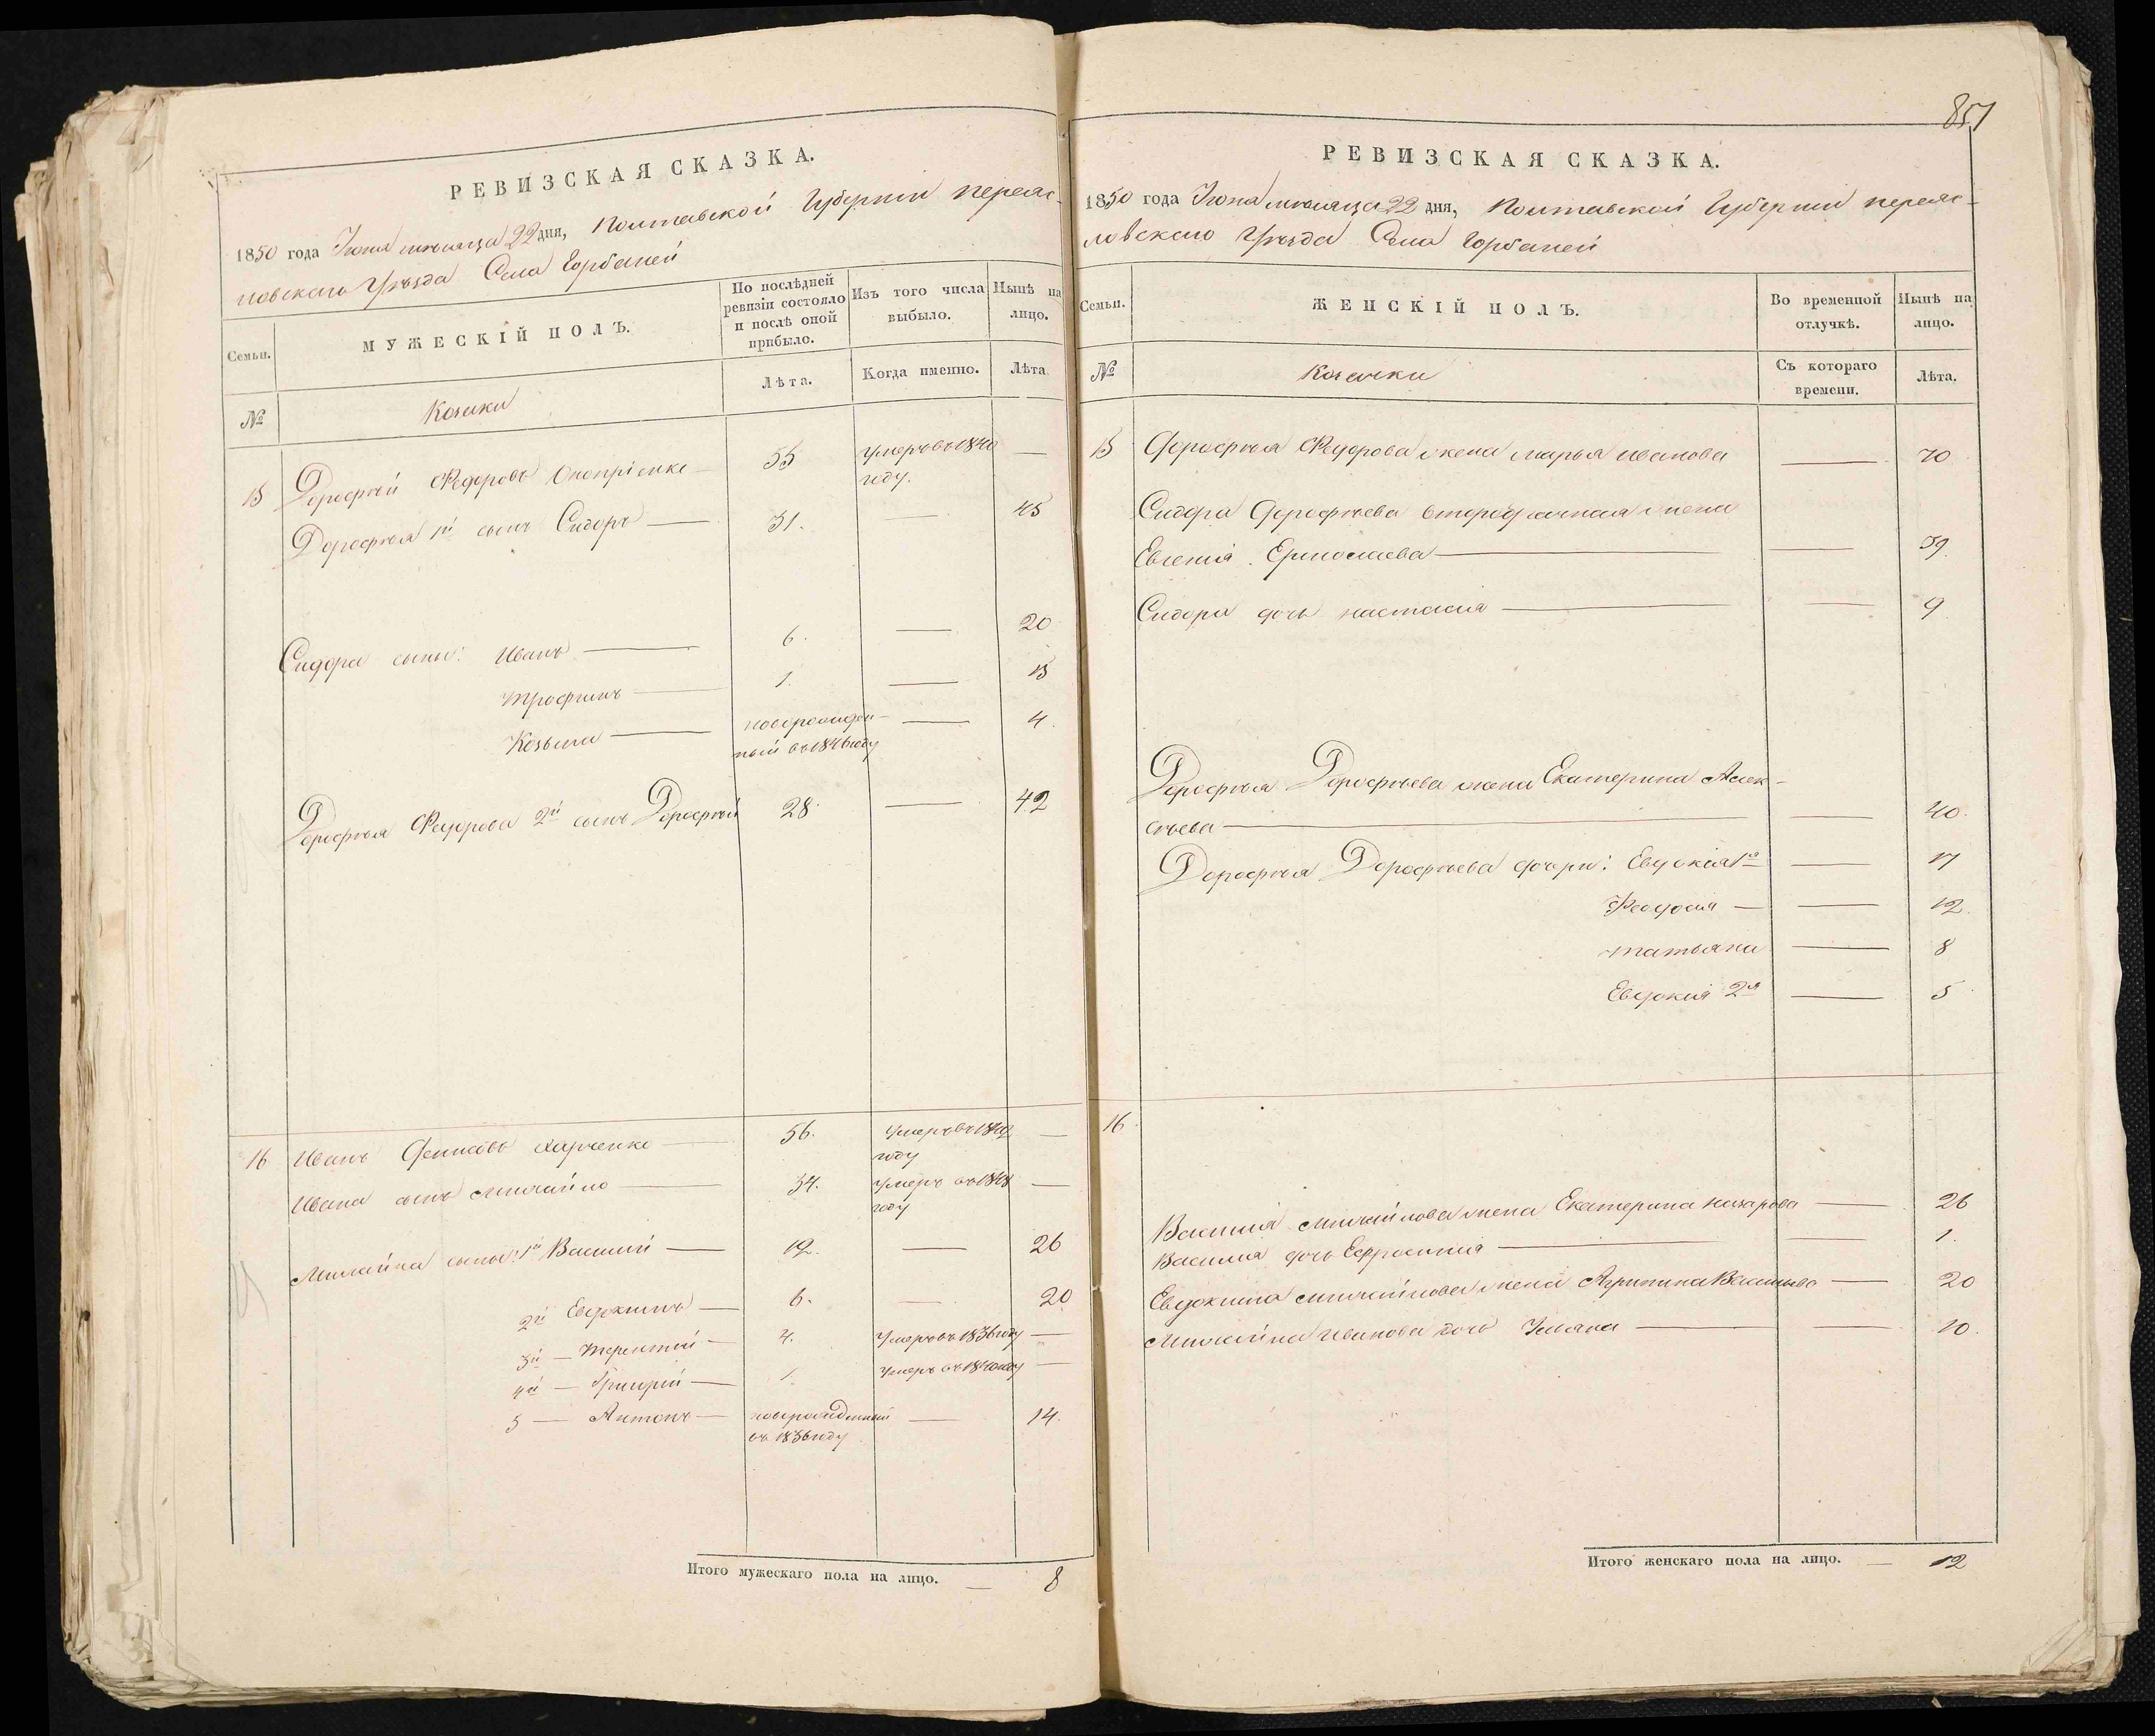 РЕВИЗСКАЯ СКАЗКА.
1850 года Іюня мѣсяца 22 дня, Полтавской Губерніи переяс-
лавскаго Уѣзда Села Горбаней
Семьи.
МУЖЕСКІЙ ПОЛЪ.
По послѣдней ревизіи состояло и послѣ оной прибыло.
Изъ того числа выбыло.
Нынѣ на лицо.
№
Козаки
Лѣта.
Когда именно.
Лѣта.
15 Дорофѣй Федоровъ Оноприенко — 55 умеръ въ 1840 —
году.
Дорофѣя 1й сынъ Сидоръ — 31. — 45
Сидора сыны: Иванъ — 6. — 20
Трофимъ — 1. — 15
Козьма — новорожден- — 4.
ный въ 1846 году
Дорофѣя Федорова 2й сынъ Дорофѣй 28. — 42
16 Иванъ Денисовъ Харченко — 56. умеръ въ —
году
Ивана сынъ Михайло — 34. умеръ въ 1848 —
году
Михайла сыны: 1й Василий — 12. — 26
2й Евдокимъ — 6. — 20
3й — Терентий — 4. Умеръ въ 1836 году —
4й — Григорий — 1. Умеръ въ 1840 году —
5 — Антонъ — новорожденный — 14.
въ 1836 году
Итого мужескаго пола на лицо. — 8
851
РЕВИЗСКАЯ СКАЗКА.
1850 года Іюня мѣсяца 22 дня, Полтавской Губерніи переяс-
лавскаго Уѣзда Села Горбаней
Семьи.
ЖЕНСКІЙ ПОЛЪ.
Во временной отлучкѣ.
Нынѣ на лицо.
№
Козачки
Съ котораго времени.
Лѣта.
15 Дорофѣя Федорова жена Марья Иванова — 70
Сидора Дорофѣева второбрачная жена
Евгенія Ермолаева — — 39.
Сидора дочь Настасія — — 9
Дорофѣя Дорофѣева жена Екатерина Алек-
сѣева — — 40.
Дорофѣя Дорофѣева дочери: Евдокія 1я — 17
Феодосія — — 12.
Татьяна — 8
Евдокія 2я — 5
16.
Василия Михайлова жена Екатерина Назарова — 26
Василия дочь Ефросинія — — 1.
Евдокима Михайлова жена Агрипина Васильева — 20
Михайла Иванова дочь Ульяна — — 10.
Итого женскаго пола на лицо. — 12